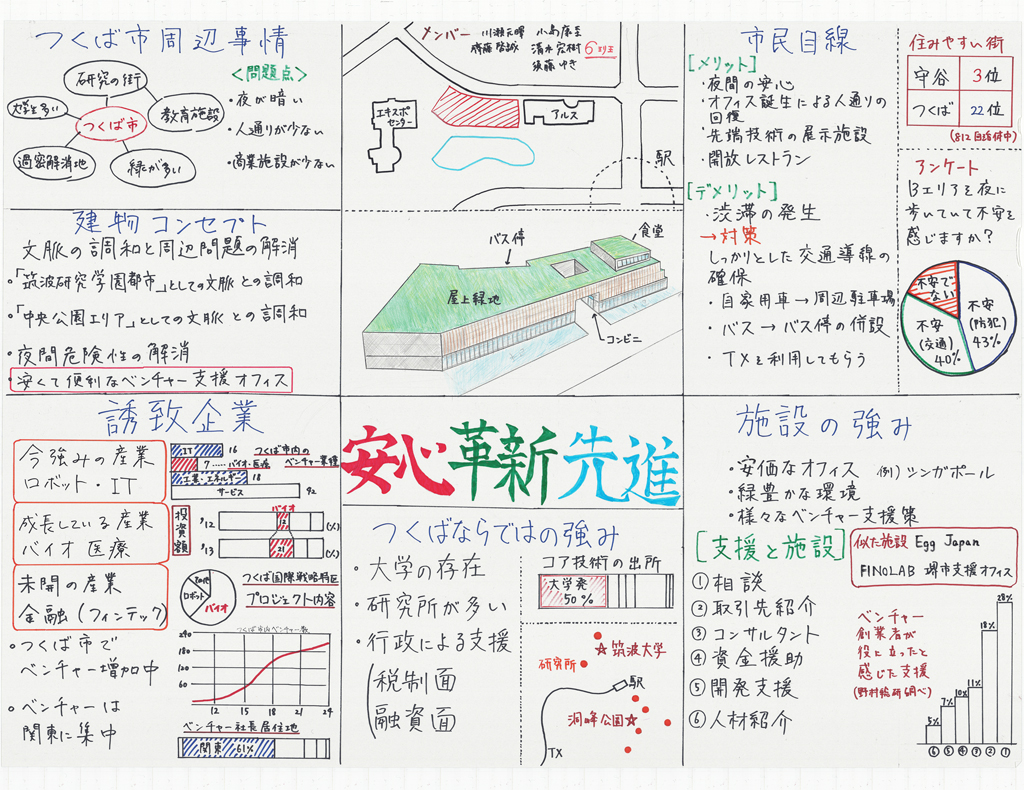 つくば市周辺事情
研究の街
大学生多い
つくば市
教育施設
過密解消地
緑が多い
<問題点>
・夜が暗い
・人通りが少ない
・商業施設が少ない
メンバー
小島
清水宏樹
須藤ゆき
6
エキスポ
センター
アルス
駅
市民目線
[メリット]
・夜間の安心
・オフィス誕生による人通りの
回復
・先端技術の展示施設
・開放レストラン
[デメリット]
・渋滞の発生
→対策
しっかりとした交通導線の
確保
・自家用車→周辺駐車場
・バス→バス停の併設
・TXを利用してもらう
住みやすい街
守谷 3位
つくば 22位
アンケート
Bエリアを夜に
歩いていて不安を
感じますか?
不安で
ない
不安
(防犯)
43%
不安
(交通)
40%
建物コンセプト
文脈の調和と周辺問題の解消
・「筑波研究学園都市」としての文脈との調和
・「中央公園エリア」としての文脈との調和
・夜間危険性の解消
・安くて便利なベンチャー支援オフィス
バス停
食堂
屋上緑地
コンビニ
誘致企業
今強みの産業
ロボット・IT
成長している産業
バイオ医療
未開の産業
金融(フィンテック)
・つくば市で
ベンチャー増加中
・ベンチャーは
関東に集中
つくば市内の
ベンチャー業種
IT 16
7 ..... バイオ・医療
工業・エネルギー 18
サービス 92
投資額
バイオ
'12 12 (%)
'13 21 (%)
つくば国際戦略特区
プロジェクト内容
その他
ロボット
バイオ
つくば市内ベンチャー数
240
180
120
60
12 15 18 21 24
ベンチャー社長居住地
関東 61%
安心 革新 先進
つくばならではの強み
・大学の存在
・研究所が多い
・行政による支援
(税制面
融資面
コア技術の出所
大学発
50%
筑波大学
研究所
駅
洞峰公園
TX
施設の強み
・安価なオフィス 例)シンガポール
・緑豊かな環境
・様々なベンチャー支援策
[支援と施設]
似た施設 Egg Japan
FINOLAB 堺市支援オフィス
①相談
②取引先紹介
③コンサルタント
④資金援助
⑤開発支援
⑥人材紹介
ベンチャー
創業者が
役に立ったと
感じた支援
(野村総研調べ)
5% 7% 10% 11% 18% 28%
⑥ ⑤ ④ ③ ② ①